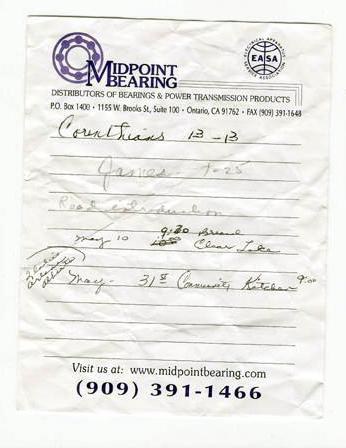 MIDPOINT
BEARING
EASA
DISTRIBUTORS OF BEARINGS & POWER TRANSMISSION PRODUCTS
P.O. BOX 1400 • 1155 W. Brooks St., Suite 100 • Ontario, CA 91762 • FAX (909) 391-1648
Corenthians 13-13
James 1-25
Read introduction
9:30
May 10 Clear Lake
May - 31st Community Kitchen 9:00
Visit us at: www.midpointbearing.com
(909) 391-1466